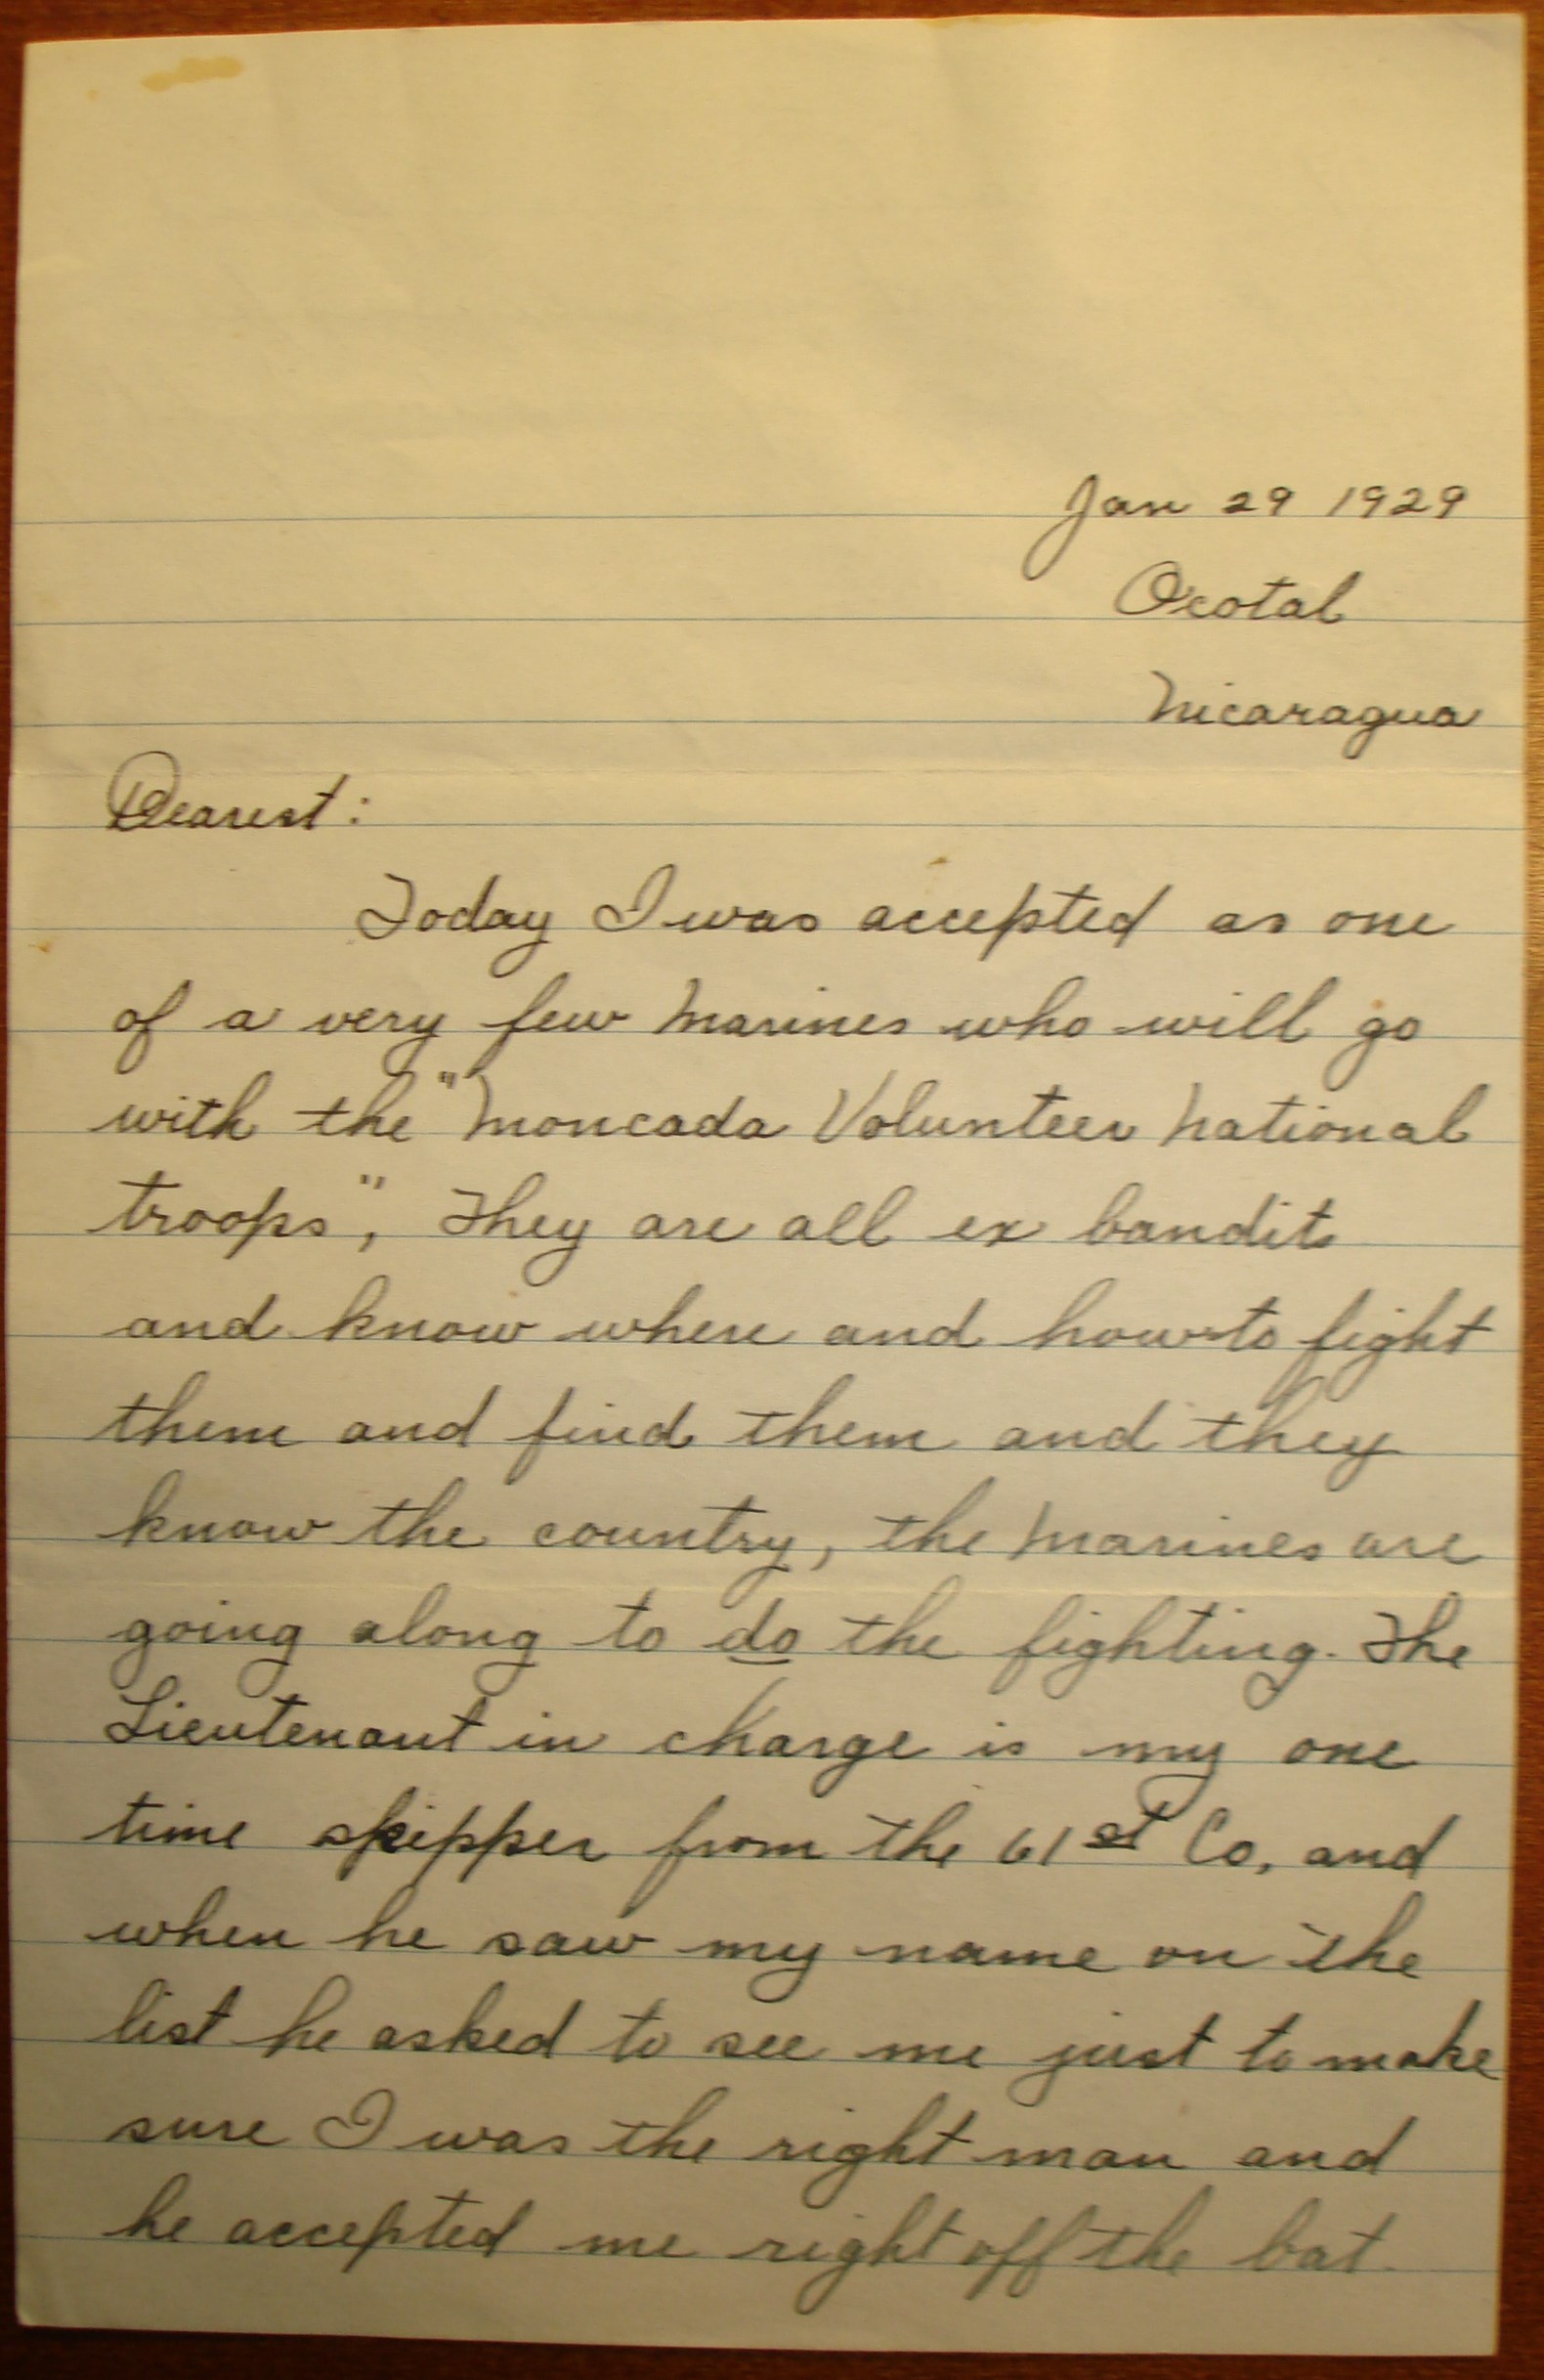 Jan 29 1929
Ocotal
Nicaragua
Dearest:
Today I was accepted as one
of a very few Marines who will go
with the "Moncada Volunteer National
troops", They are all ex bandits
and know where and how to fight
them and find them and they
know the country, the Marines are
going along to do the fighting. The
Lieutenant in charge is my one
time skipper from the 61st Co, and
when he saw my name on the
list he asked to see me just to make
sure I was the right man and
he accepted me right off the bat.